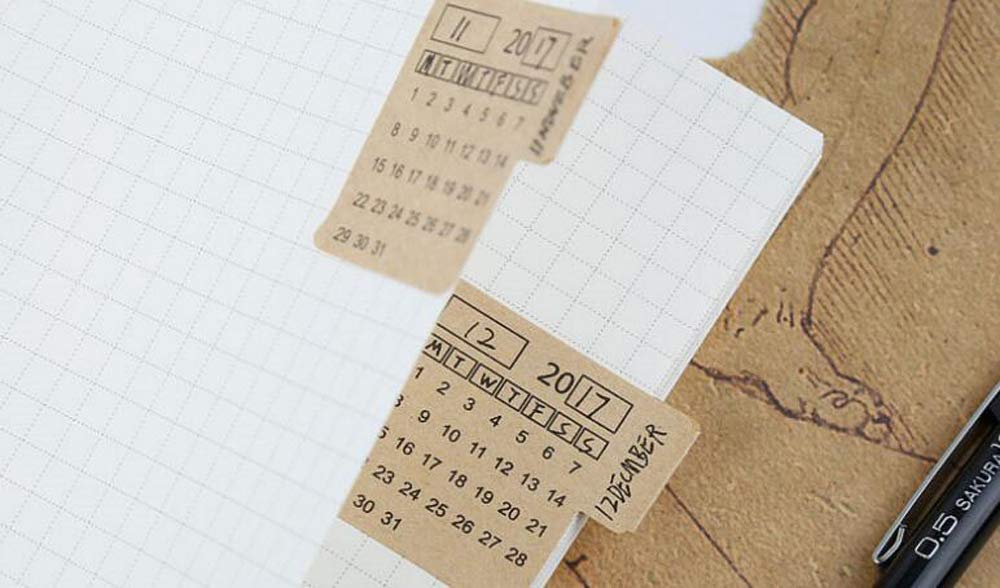 11 2017
M T W T F S S
1 2 3 4 5 6 7
8 9 10 11 12 13 14
15 16 17 18 19 20 21
22 23 24 25 26 27 28
29 30 31
11 NOVEMBER
12 2017
M T W T F S S
1 2 3 4 5 6 7
9 10 11 12 13 14
16 17 18 19 20 21
23 24 25 26 27 28
30 31
12 DECEMBER
0.5 SAKURA